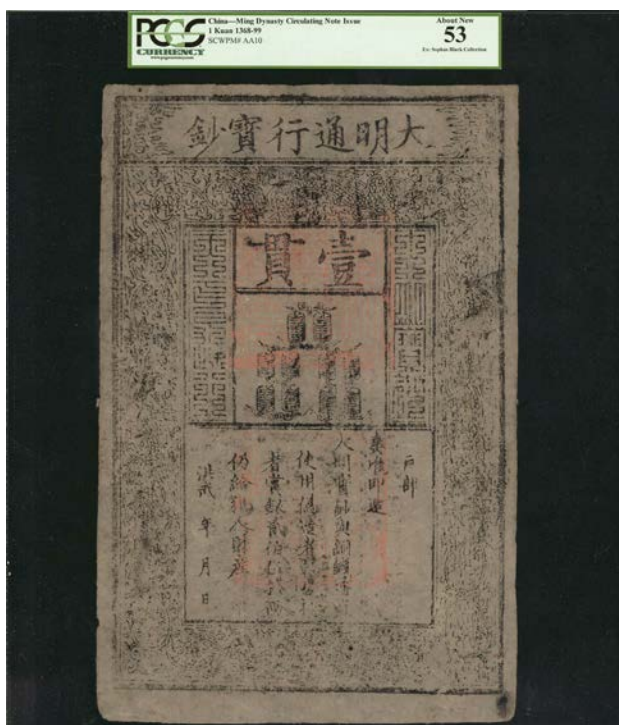 PCGS
CURRENCY
www.pcgscurrency.com
China—Ming Dynasty Circulating Note Issue
1 Kuan 1368-99
SCWPM# AA10
About New
53
Ex: Stephan Black Collection
大明通行寶鈔
壹貫
戶部
奏准印造
大明寶鈔與銅錢
使用偽造者
者賞銀貳伍拾兩
仍給犯人財產
洪武 年 月 日